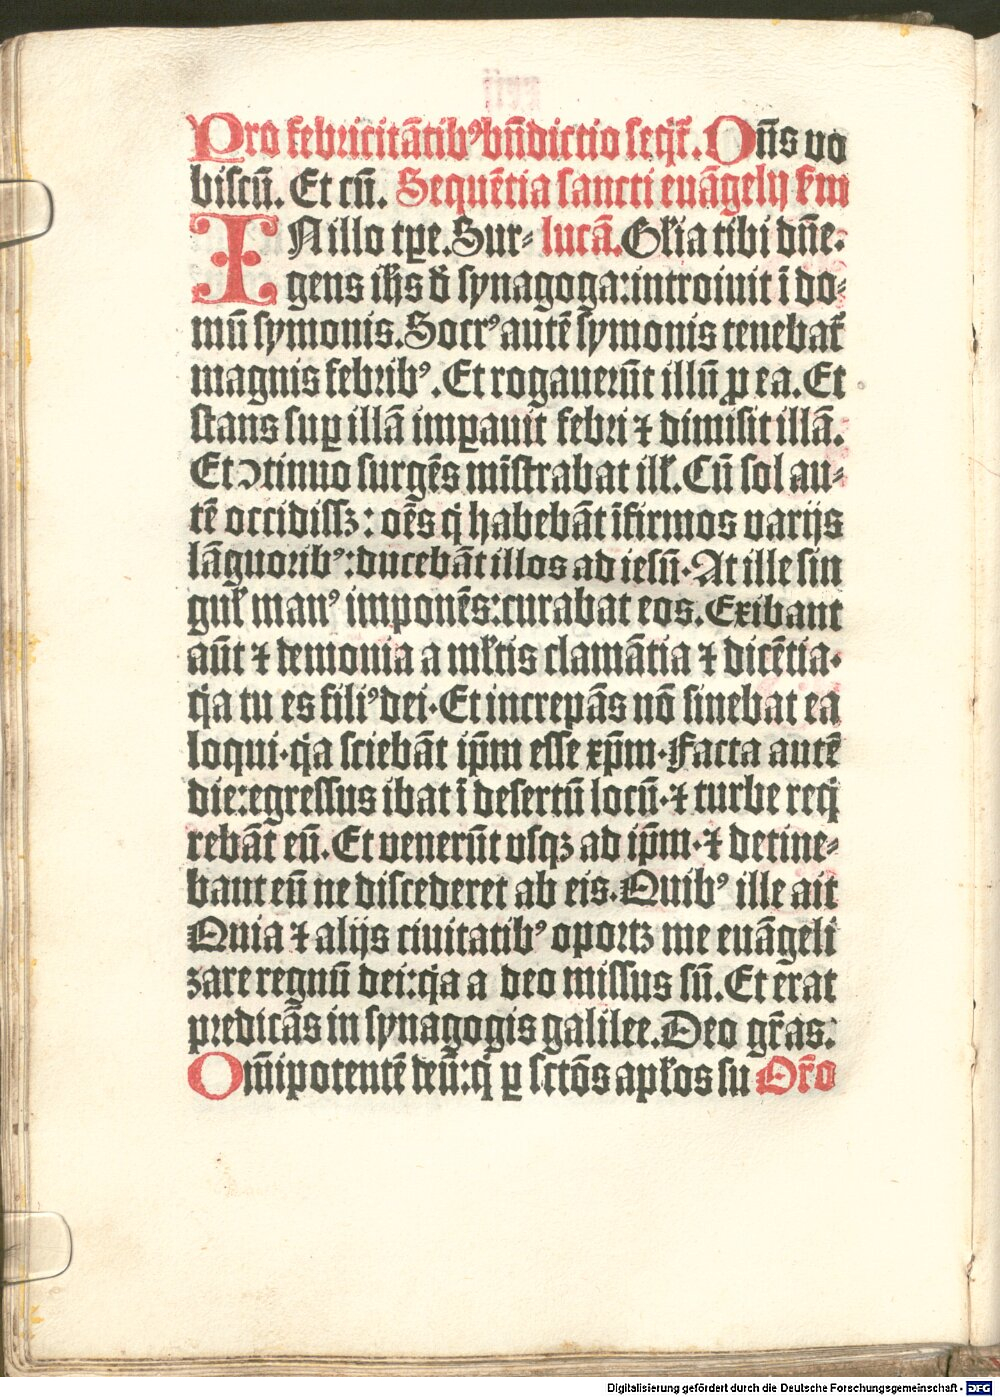 Pro febricitãtibꝰ bñdictio seqt᷑. Dñs vo
biscũ. Et cũ. Sequẽtia sancti euãgelij scd᷑m
IN illo tꝑe. Sur⸗ lucã. Gl᷑ia tibi dñe.
gens ih̃s d̃ synagoga: introiuit ĩ do⸗
mũ symonis. Socrꝰ autẽ symonis tenebat᷑
magnis febribꝰ. Et rogauerũt illũ ꝓ ea. Et
stans suꝑ illã imꝑauit febri ⁊ dimisit illã.
Et ↄtinuo surgẽs mĩstrabat ill᷑. Cũ sol au⸗
tẽ occidissꝫ: oẽs q̃ habebãt ĩfirmos varijs
lãguoribꝰ: ducebãt illos ad iesũ. At ille sin
gul᷑ manꝰ imponẽs: curabat eos. Exibant
aũt ⁊ demonia a ml᷑tis clamãtia ⁊ dicẽtia.
q̃a tu es filiꝰ dei. Et increpãs nõ sinebat ea
loqui. q̃a sciebãt ip̃m esse xp̃m. Facta autẽ
die: egressus ibat ĩ desertũ locũ. ⁊ turbe req̃
rebãt eũ. Et venerũt vsqꝫ ad ip̃m. ⁊ detine⸗
bant eũ ne discederet ab eis. Quibꝰ ille ait
Quia ⁊ alijs ciuitatibꝰ oportꝫ me euãgeli
zare regnũ dei: q̃a a deo missus sũ. Et erat
predicãs in synagogis galilee. Deo gr̃as.
Om̃ipotentẽ deũ: q̃ ꝑ sctõs apl᷑os su Or̃o
Digitalisierung gefördert durch die Deutsche Forschungsgemeinschaft - DFG